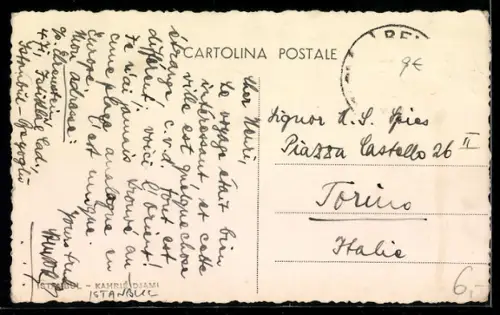 CARTOLINA POSTALE
9€
Cher Henri,
Le voyage était bien
intéressant, et cette
ville est quelque chose
étrange, c.v.d. tout est
différent, voici l'orient!
Je n'ai jamais trouvé en
une place analogue en
Europe, c'est unique.
Mon adresse:
471, Istiklal Cad.,
Istanbul-Beyoglu
Yours truly
Signor H. S. Spies
Piazza Castello 26 II
Torino
Italie
6
ISTANBUL - KAHRIE DJAMI
ISTANBUL